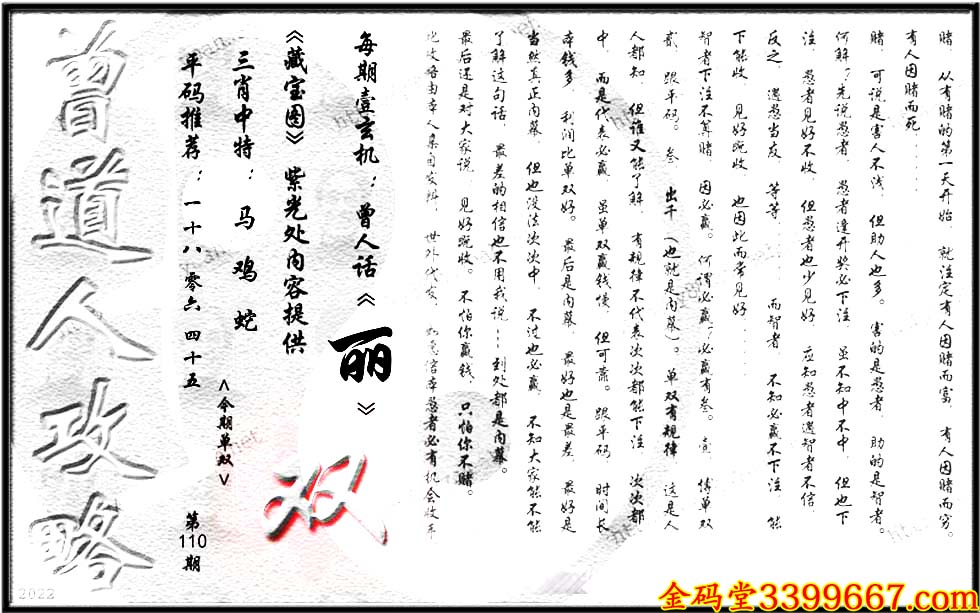 赌．从有赌的第一天开始．就注定有人因赌而富．有人因赌而穷。
有人因赌而死……
赌．可说是害人不浅．但助人也多。害的是愚者．助的是智者。
何解？先说愚者．愚者逢开奖必下注．虽不知中不中．但也下
注．愚者见好不收．但愚者也少见好．应知愚者遇智者不信．
反之．遇愚当友．等等……．而智者．不知必赢不下注．能
下能收．见好就收．也因此而常见好……
智者下注不算赌．因必赢。何谓必赢．必赢有叁。壹．博单双
贰．跟平码。叁．出千（也就是内幕）。单双有规律．这是人
人都知．但谁又能了解．有规律不代表次次都能下注．次次都
中．而是代表必赢．虽单双赢钱慢．但可靠。跟平码．时间长
本钱多．利润比单双好。最后是内幕．最好也是最差．最好是
当然真正内幕．但也没法次次中．不过也必赢．不知大家能不能
了解这句话．最差的相信也不用我说……到处都是内幕。
最后还是对大家说．见好就收。不怕你赢钱．只怕你不赌。
每期壹玄机：曾人话《丽》
《藏宝图》紫光处内容提供
三肖中特：马 鸡 蛇
平码推荐：一 十八 零六 四十五
<今期单双>
双
第110期
曾道人攻略
2022
金码堂3399667.com